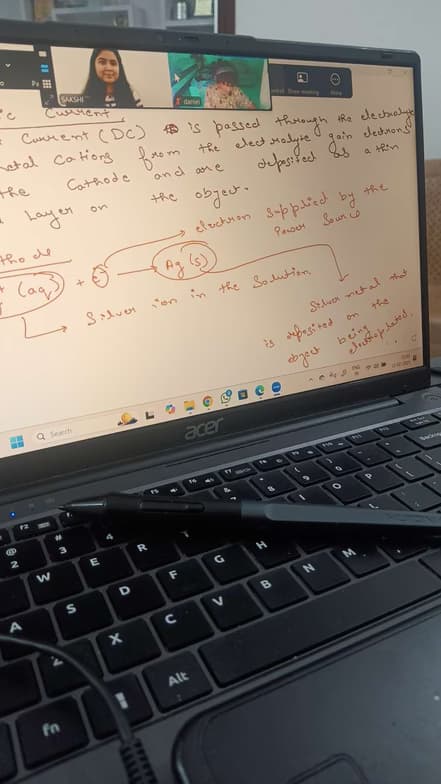 SAKSHI
daniel
Current
Current (DC) is passed through the electrolyte
metal cations from the electrolyte gain electrons
the Cathode and are deposited as a thin
Layer on the object.
electron supplied by the
Power Source
(aq) + e⁻ → Ag(s)
Silver ion in the Solution
Silver metal that
is deposited on the
object being
electroplated.
Search
acer
F2
F5
F6
F7
@
2
#
3
4
&
8
9
0
W
E
R
I
O
P
A
S
D
F
G
H
X
C
V
B
N
M
fn
Alt